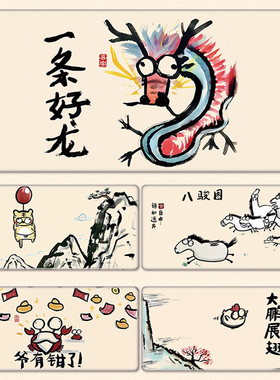 一条好龙
八骏图
爷有钳了!
大鹏展翅